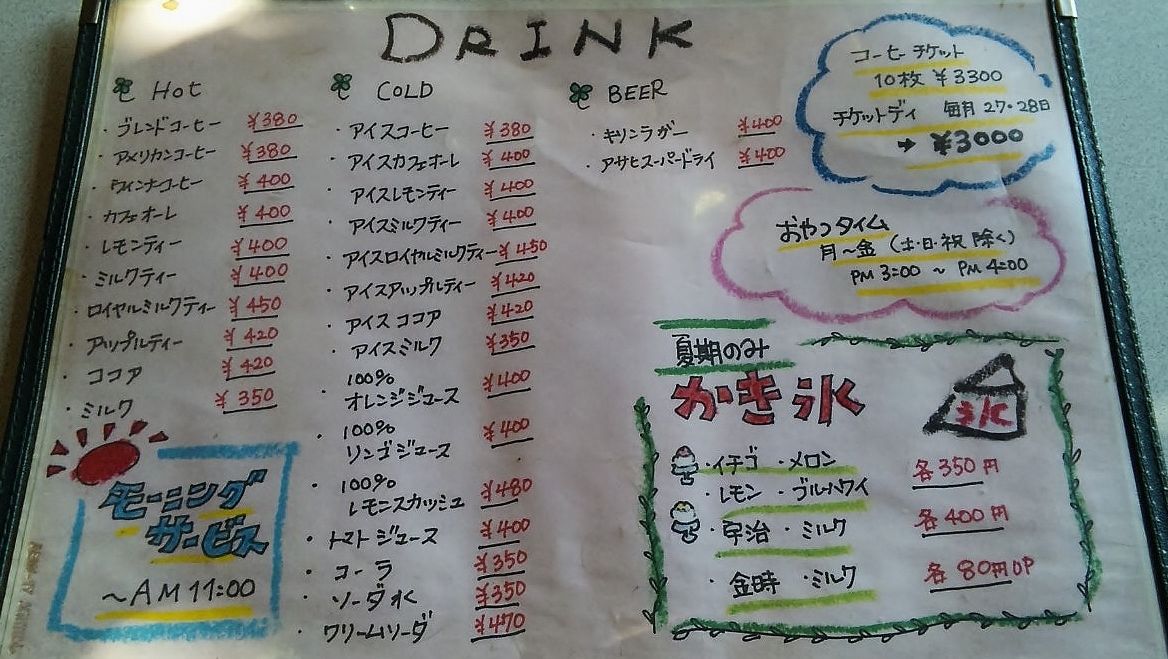 DRINK
Hot
・ブレンドコーヒー ¥380
・アメリカンコーヒー ¥380
・ウィンナコーヒー ¥400
・カフェオーレ ¥400
・レモンティー ¥400
・ミルクティー ¥400
・ロイヤルミルクティー ¥450
・アップルティー ¥420
・ココア ¥420
・ミルク ¥350
モーニング
サービス
〜AM11:00
COLD
・アイスコーヒー ¥380
・アイスカフェオーレ ¥400
・アイスレモンティー ¥400
・アイスミルクティー ¥400
・アイスロイヤルミルクティー ¥450
・アイスアップルティー ¥420
・アイスココア ¥420
・アイスミルク ¥350
・100%
オレンジジュース ¥400
・100%
リンゴジュース ¥400
・100%
レモンスカッシュ ¥480
・トマトジュース ¥400
・コーラ ¥350
・ソーダ水 ¥350
・クリームソーダ ¥470
BEER
・キリンラガー ¥400
・アサヒスーパードライ ¥400
コーヒーチケット
10枚 ¥3300
チケットディ 毎月27・28日
→ ¥3000
おやつタイム
月〜金（土・日・祝除く）
PM3:00 〜 PM4:00
夏期のみ
かき氷
氷
・イチゴ ・メロン 各350円
・レモン ・ブルハワイ
・宇治 ・ミルク 各400円
・金時 ・ミルク 各80円UP